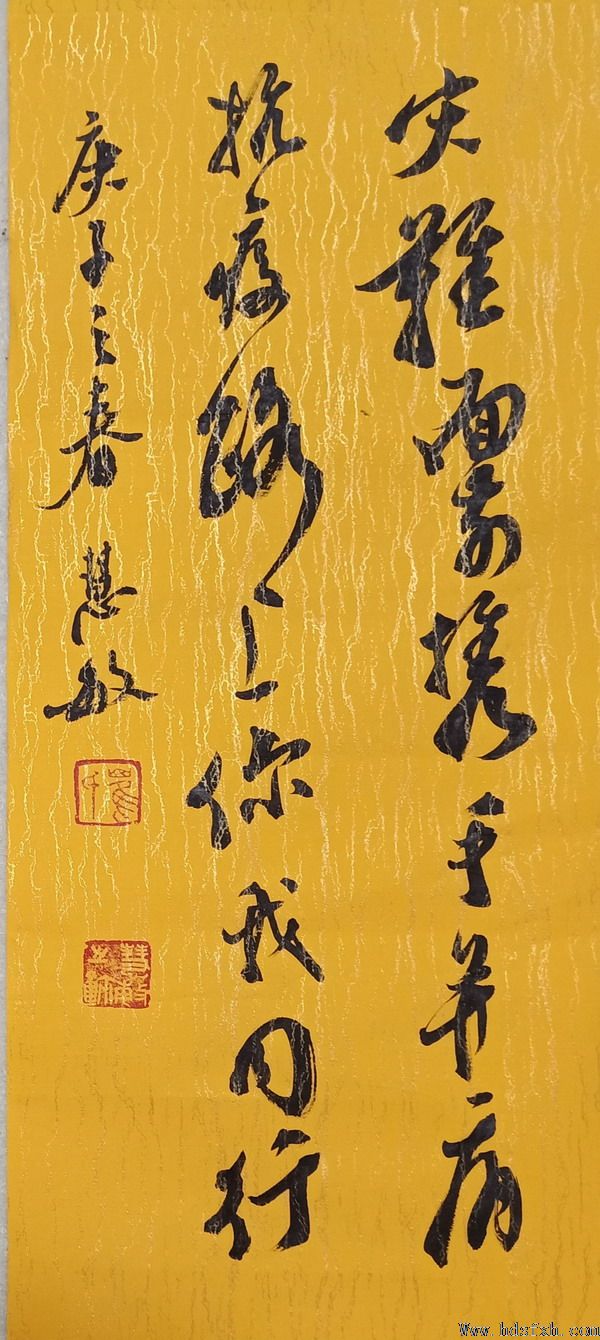 灾難面前携手并肩
抗疫路上你我同行
庚子之春 慧敏
Www.hdsfxh.com